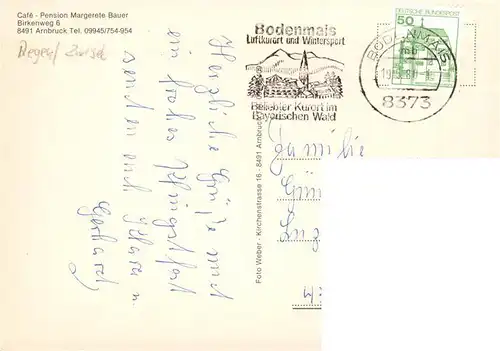 Café - Pension Margerete Bauer
Birkenweg 6
8491 Arnbruck Tel. 09945/754-954
Bodenmais
Luftkurort und Wintersport
Beliebter Kurort im
Bayerischen Wald
DEUTSCHE BUNDESPOST
50
BODENMAIS
8373
Herzliche Grüße und
ein frohes Pfingstfest
senden euch
Gerhard
Foto Weber - Kirchenstrasse 16 - 8491 Arnbruck
Familie